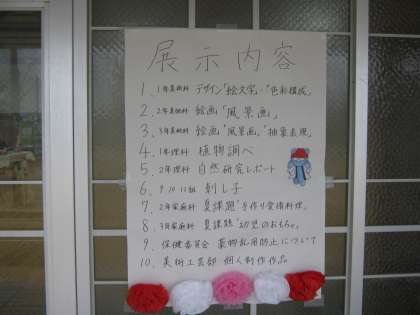 展示内容
1. 1年美術科 デザイン「絵文字」・「色彩構成」
2. 2年美術科 絵画「風景画」
3. 3年美術科 絵画「風景画」「抽象表現」
4. 1年理科 植物調べ
5. 2年理科 自然研究レポート
6. 9 10 11組 刺し子
7. 2年家庭科 夏課題「手作り愛情料理」
8. 3年家庭科 夏課題「幼児のおもちゃ」
9. 保健委員会 薬物乱用防止について
10. 美術工芸部 個人制作作品